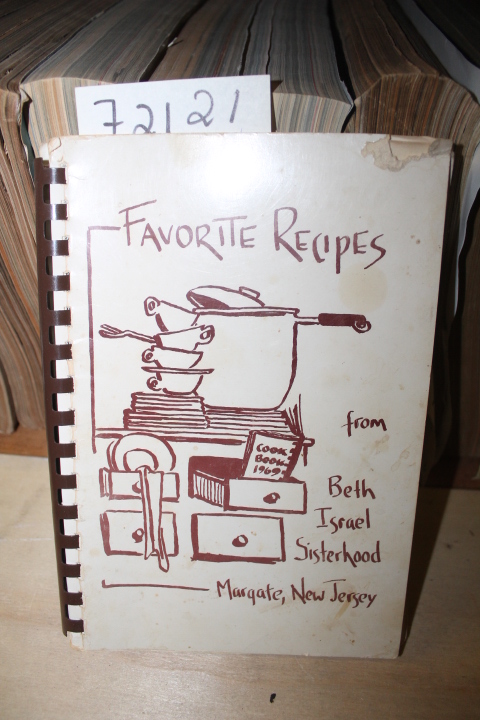 72121
FAVORITE RECIPES
from
COOK
BOOK
1969
Beth
Israel
Sisterhood
Margate, New Jersey